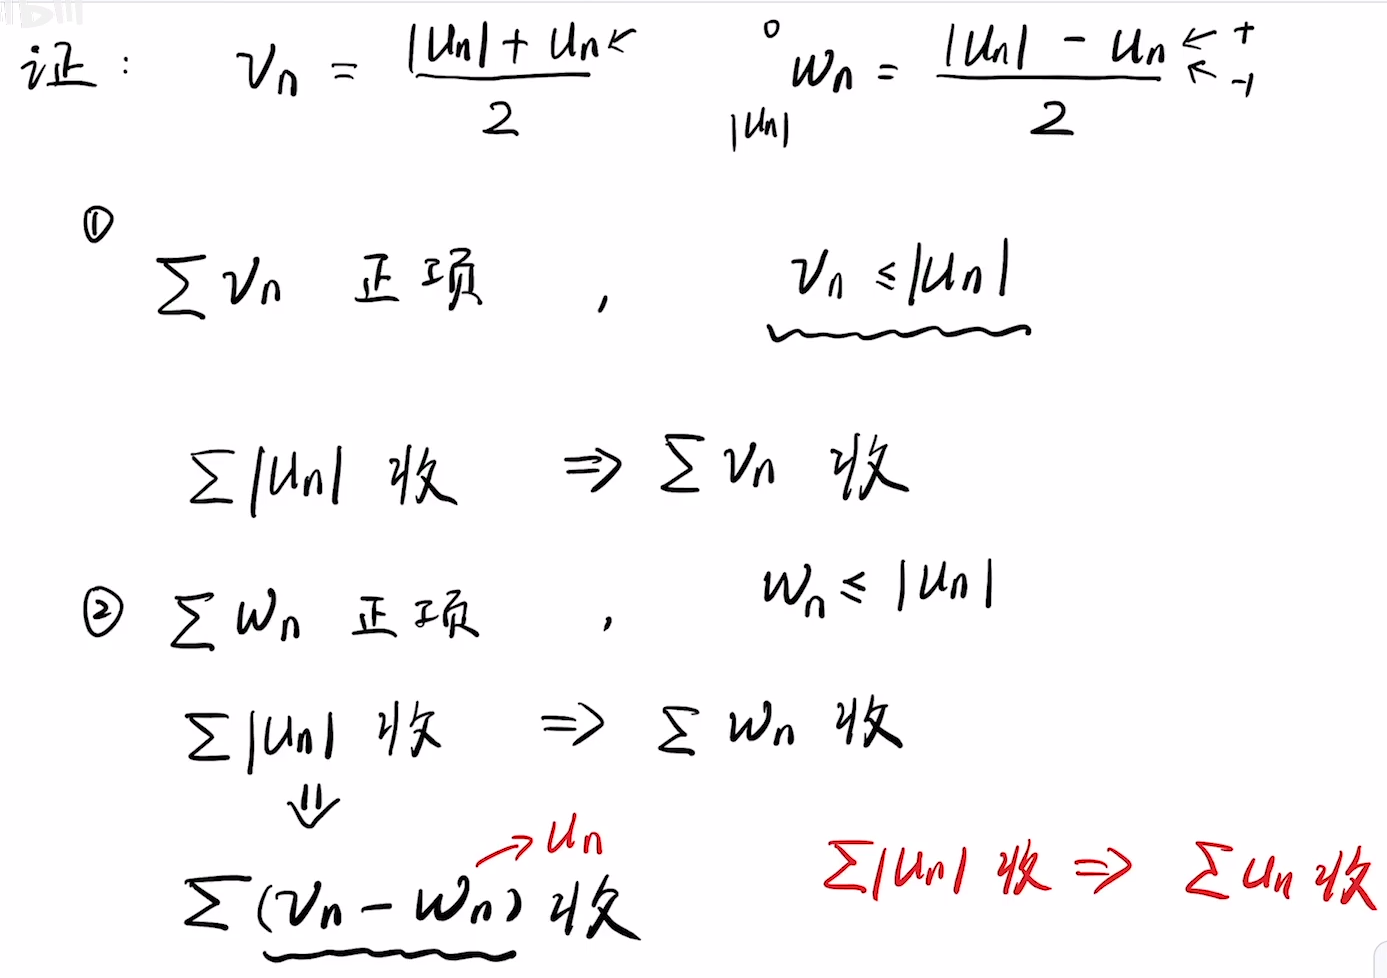 证： vₙ = (|uₙ| + uₙ)/2 ← 0 wₙ = (|uₙ| - uₙ)/2 ← + ← -1
|uₙ|
① ∑ vₙ 正项 ， vₙ ≤ |uₙ|
∑ |uₙ| 收 ⇒ ∑ vₙ 收
② ∑ wₙ 正项 ， wₙ ≤ |uₙ|
∑ |uₙ| 收 ⇒ ∑ wₙ 收
⇓
→ uₙ
∑ (vₙ - wₙ) 收 ∑ |uₙ| 收 ⇒ ∑ uₙ 收